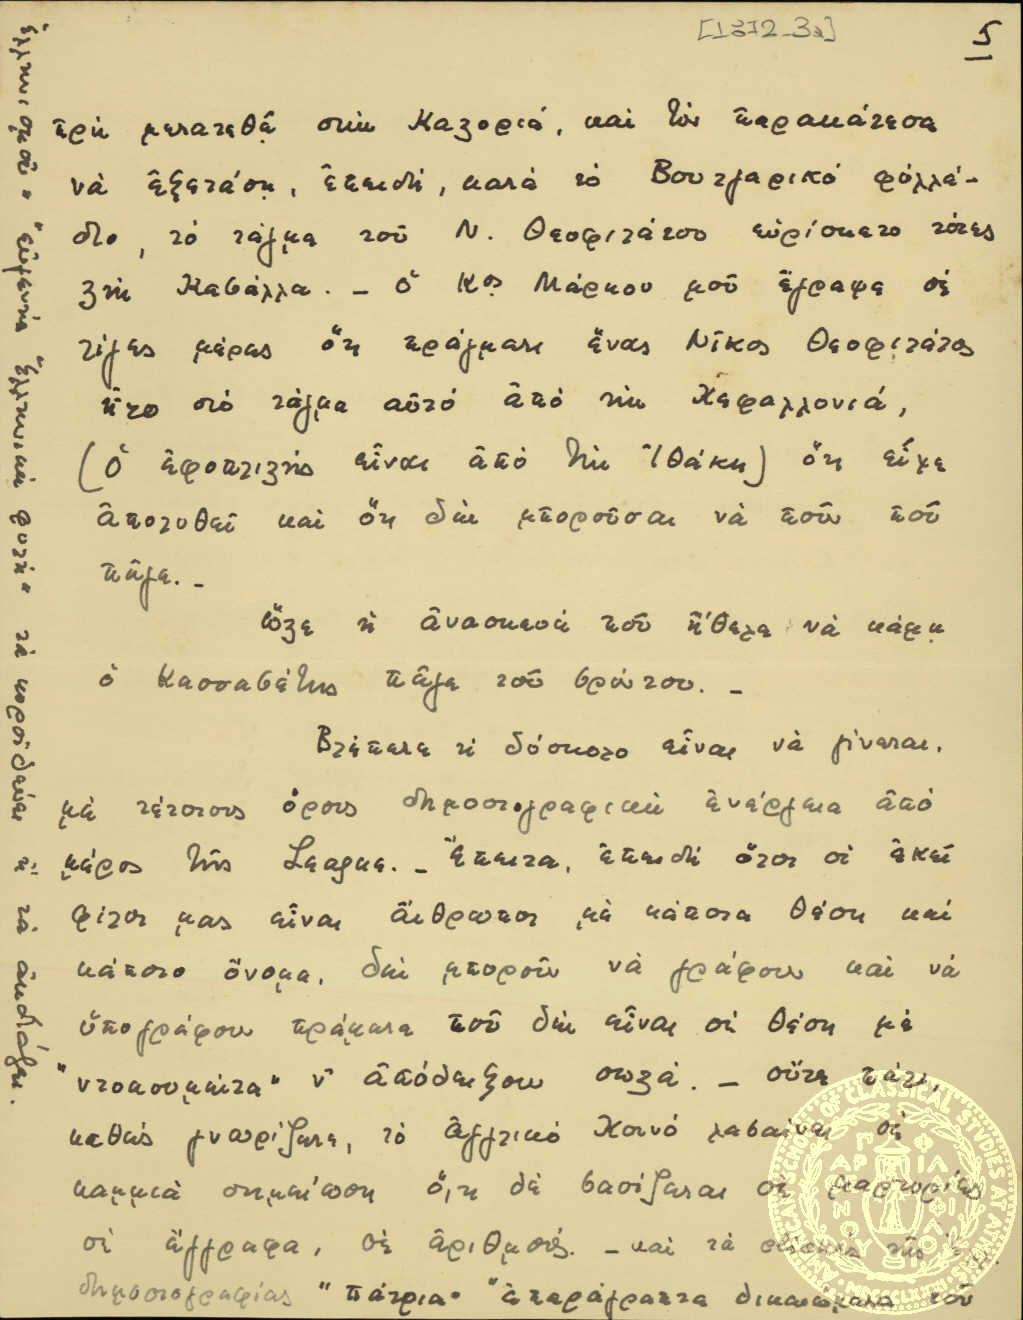 [1372_3a]
5
πρὶν μετατεθῇ στὴν Καζοριά, καὶ τὸν παρακάλεσα
νὰ ἐξετάσῃ, ἐπειδή, κατὰ τὸ Βουλγαρικὸ φυλλά-
διο, τὸ τάγμα τοῦ Ν. Θεοφιλάτου εὑρίσκετο τότες
στὴν Καβάλλα. _ Ὁ Κος Μάρκου μοῦ ἔγραψε σὲ
λίγες μέρες ὅτι πράγματι ἕνας Νῖκος Θεοφιλάτος
ἦτο στὸ τάγμα αὐτὸ ἀπὸ τὴν Κεφαλλονιά,
(ὁ ἐφοπλιστὴς εἶναι ἀπὸ τὴν Ἰθάκη) ὅτι εἶχε
ἀπολυθεῖ καὶ ὅτι δὲν μποροῦσαν νὰ ποῦν ποῦ
πῆγε. _
Ὥστε ἡ ἀνασκευὴ ποῦ ἤθελε νὰ κάμῃ
ὁ Κασσαβέτης πῆγε τοῦ βρόντου. _
Βλέπετε τί δύσκολο εἶναι νὰ γίνεται,
μὲ τέτοιους ὅρους δημοσιογραφικὴ ἐνέργεια ἀπὸ
μέρος τῆς League. _ Ἔπειτα, ἐπειδὴ ὅλοι οἱ ἐκεῖ
φίλοι μας εἶναι ἄνθρωποι μὲ κάποια θέση καὶ
κάποιο ὄνομα, δὲν μποροῦν νὰ γράφουν καὶ νὰ
ὑπογράφουν πράματα ποῦ δὲν εἶναι σὲ θέση μὲ
"ντοκουμέντα" ν' ἀποδείξουν σωστά. _ οὔτε πάλι,
καθὼς γνωρίζετε, τὸ Ἀγγλικὸ Κοινὸ λαβαίνει σὲ
καμμιὰ σημείωση ὅ,τι δὲ βασίζεται σὲ μαρτυρίες
σὲ ἔγγραφα, σὲ ἀριθμούς. _ καὶ τὰ τῆς
δημοσιογραφίας "πάτρια" "ἀπαράγραπτα δικαιώματα τοῦ
ἑλληνισμοῦ" "εὐγενὴς Ἑλληνικὴ φυλὴ" τὰ κοροϊδεύει κι τὰ ἀηδιάζει.
AMERICAN SCHOOL OF CLASSICAL STUDIES AT ATHENS